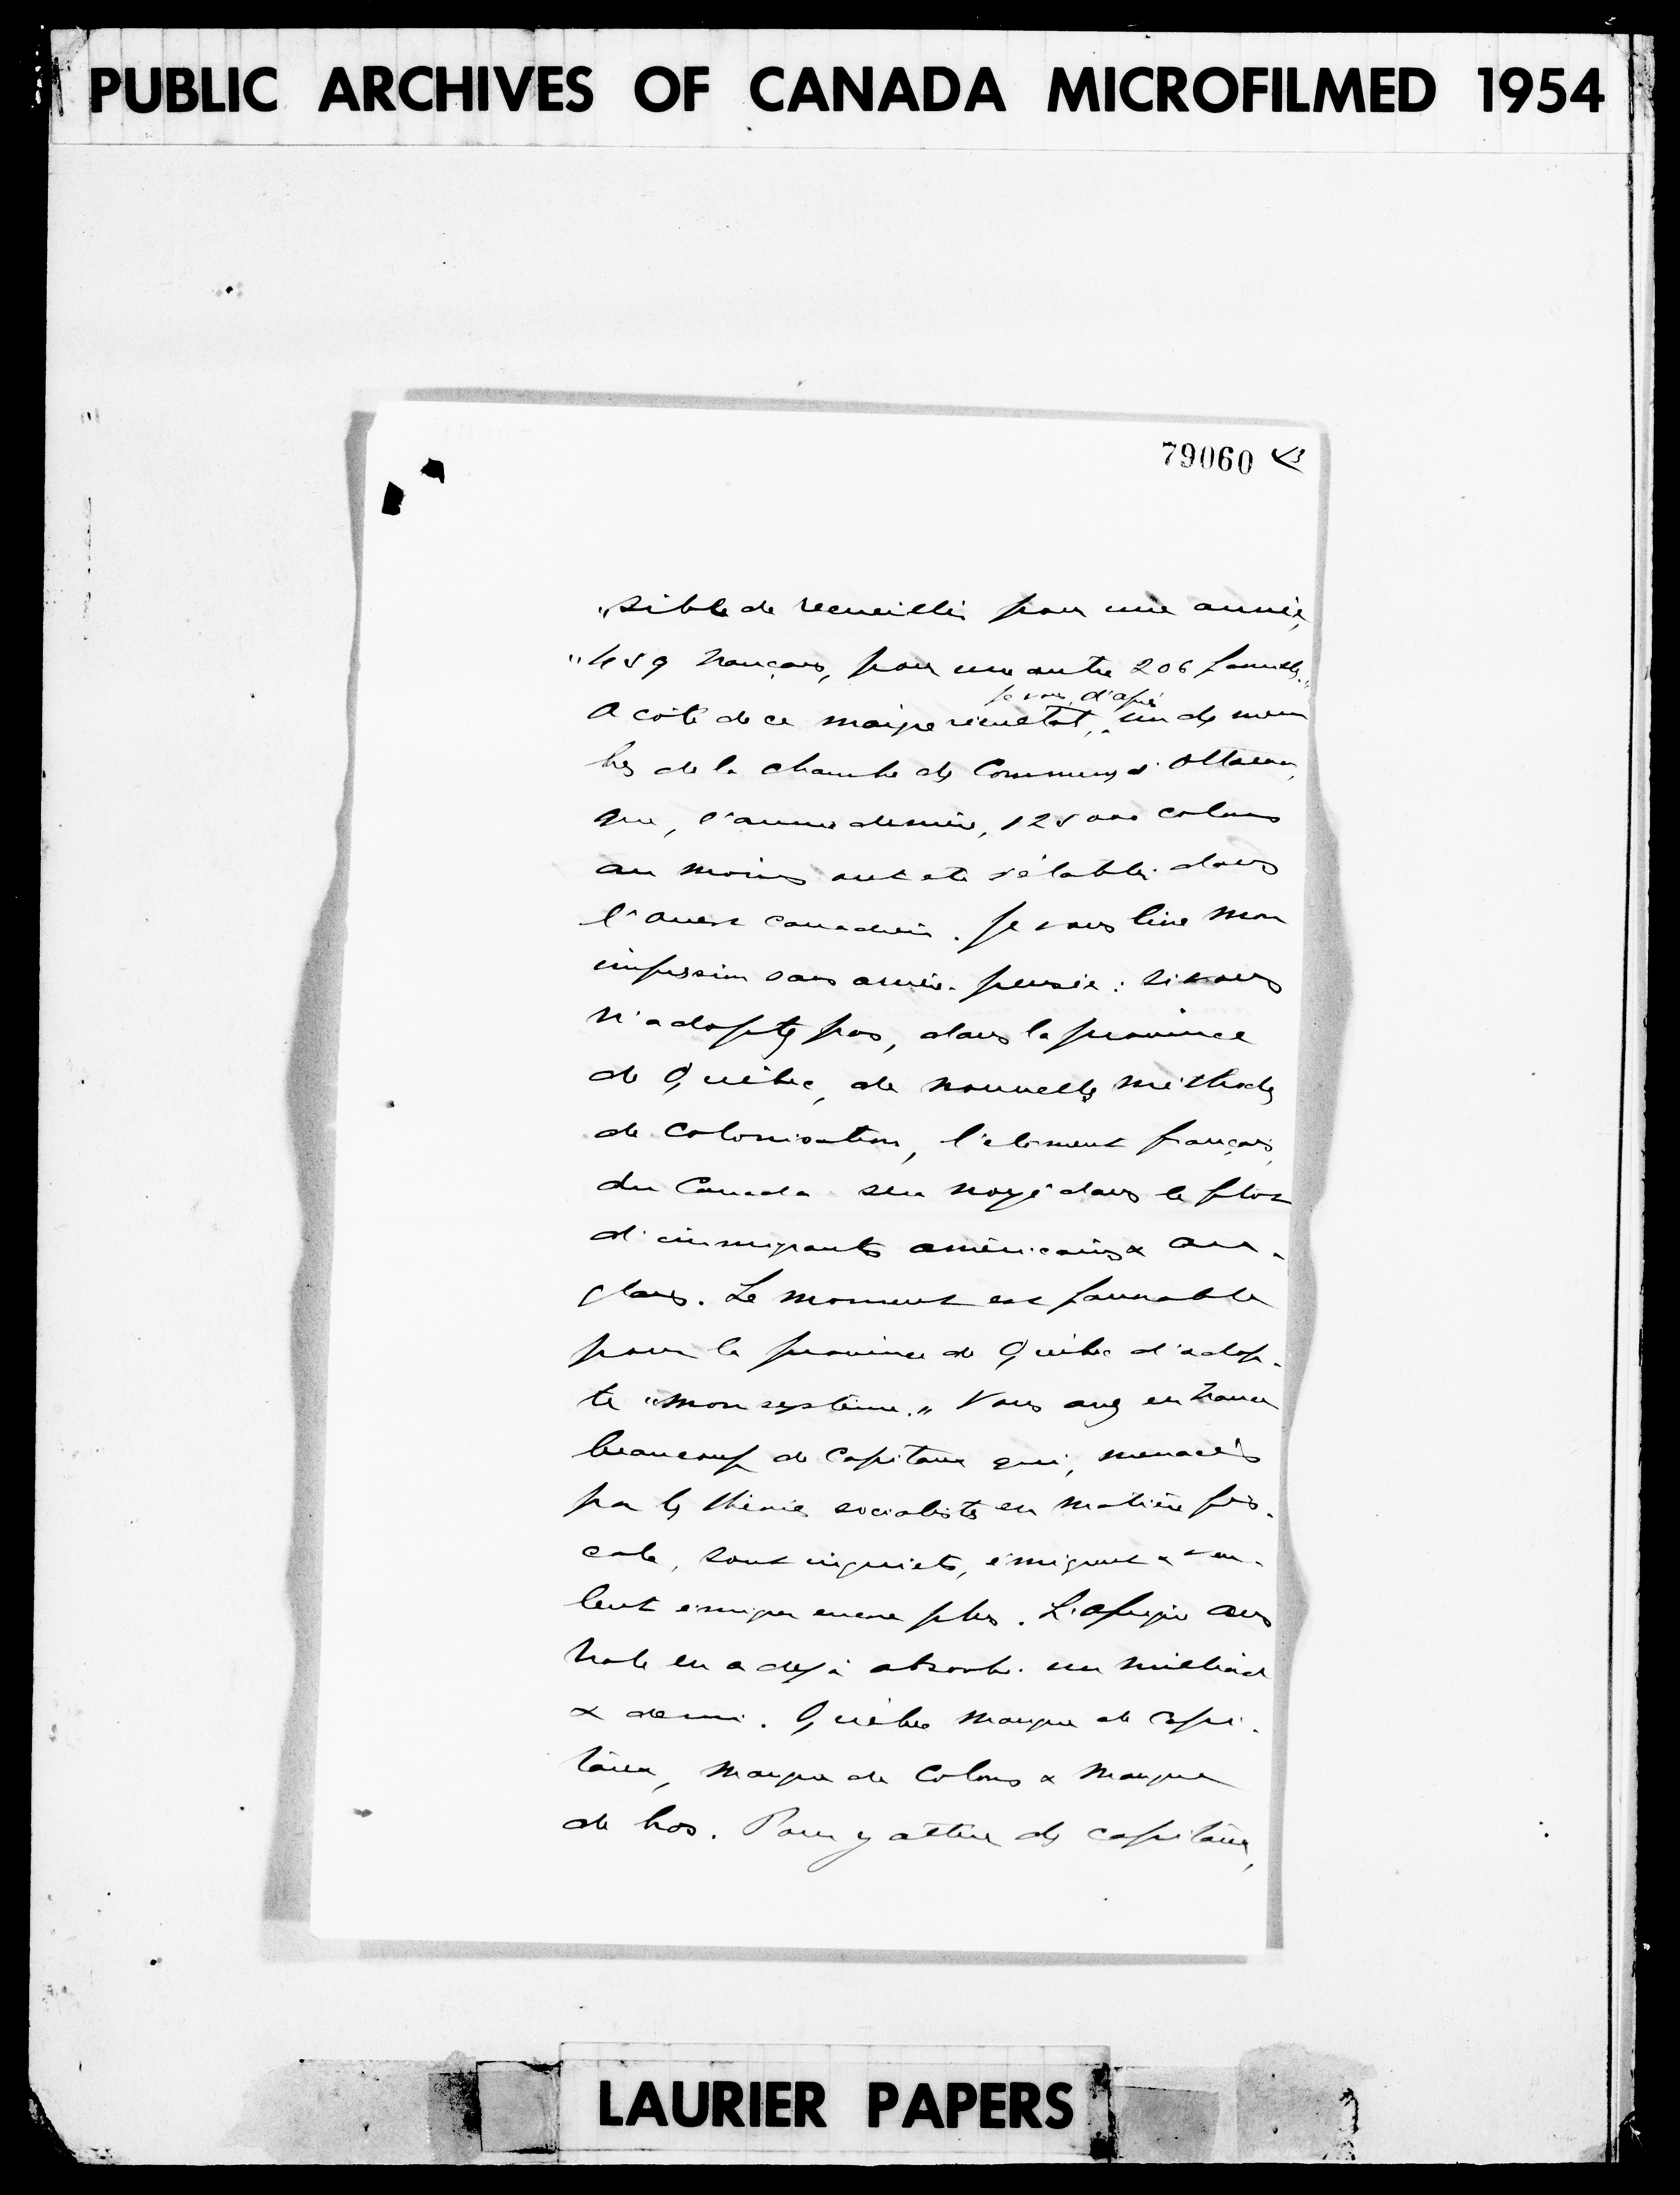 PUBLIC ARCHIVES OF CANADA MICROFILMED 1954
79060
"sible de recueillir pour une année,
"459 Français, pour une autre 206 familles."
je vois, d'après
A côté de ce maigre résultat, un des mem
bres de la chambre des Communes d'Ottawa,
que, l'année dernière, 125 000 colons
au moins ont été s'établir dans
l'ouest canadien. Je vous livre mon
impression sans arrière-pensée : si vous
n'adoptez pas, dans la province
de Québec, de nouvelles méthodes
de colonisation, l'élément français
du Canada sera noyé dans le flot
d'immigrants américains & an-
glais. Le moment est favorable
pour la province de Québec d'adop-
ter "mon système." Vous avez en France
beaucoup de capitaux qui, menacés
par les théories socialistes en matière fis-
cale, sont inquiets, émigrent & veu-
lent émigrer encore plus. L'Afrique aus
trale en a déjà absorbé un milliard
& demi. Québec manque de capi-
taux, manque de colons & manque
de bras. Pour y attirer des capitaux,
LAURIER PAPERS